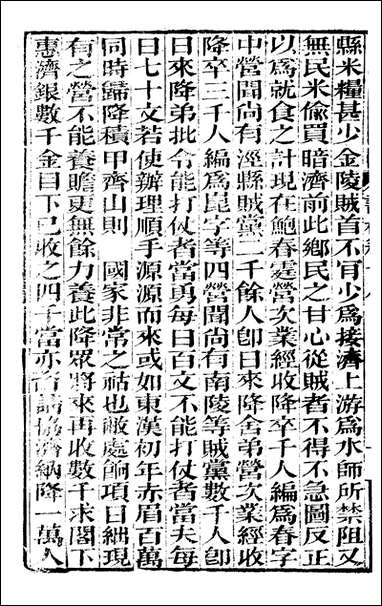 縣米糧甚少金陵賊首不肯少爲接濟上游爲水師所禁阻又
無民米偷買暗濟前此鄉民之甘心從賊者不得不急圖反正
以爲就食之計現在鮑春霆營次業經收降卒千人編爲春字
中營聞尚有涇縣賊黨二千餘人卽日來降舍弟營次業經收
降卒三千人編爲昆字等四營聞尚有南陵等賊黨數千人卽
日來降弟批令能打仗者當勇每日百文不能打仗者當夫每
日七十文若使辦理順手源源而來或如東漢初年赤眉百萬
同時歸降積甲齊山則 國家非常之祜也敝處餉項日絀現
有之營不能養贍更無餘力養此降眾將來再收數千求閣下
惠濟銀數千金目下已收之四千當亦咨請協濟納降一萬人